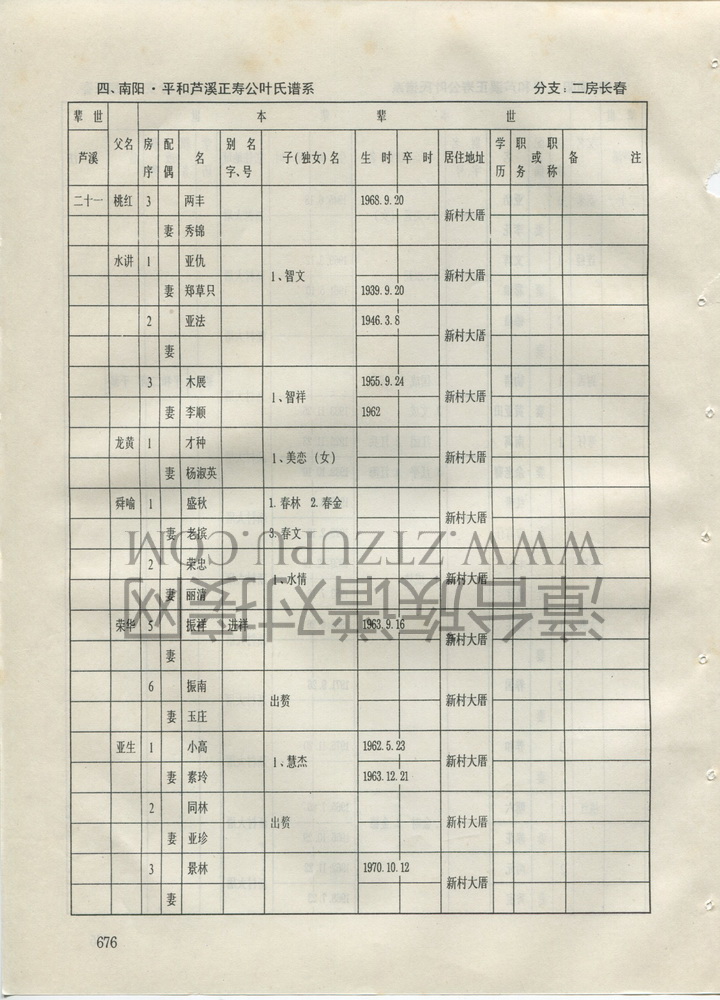 四、南阳·平和芦溪正寿公叶氏谱系 分支：二房长春
辈世 本辈世
芦溪 父名 房序 配偶 名 别名字、号 子(独女)名 生时 卒时 居住地址 学历 职务或职称 备注
二十一 桃红 3 两丰 1968.9.20 新村大厝
妻 秀锦
水讲 1 亚仇 1、智文 新村大厝
妻 郑草只 1939.9.20
2 亚法 1946.3.8 新村大厝
妻
3 木展 1、智祥 1955.9.24 新村大厝
妻 李顺 1962
龙黄 1 才种 1、美恋(女) 新村大厝
妻 杨淑英
舜喻 1 盛秋 1. 春林 2. 春金 新村大厝
妻 老摈 3. 春文
2 荣忠 1、水情 新村大厝
妻 丽清
荣华 5 振祥 进祥 1963.9.16 新村大厝
妻
6 振南 出赘 新村大厝
妻 玉庄
亚生 1 小高 1、慧杰 1962.5.23 新村大厝
妻 素玲 1963.12.21
2 同林 出赘 新村大厝
妻 亚珍
3 景林 1970.10.12 新村大厝
妻
676
WWW.ZTZUPU.COM
漳台族谱对接网